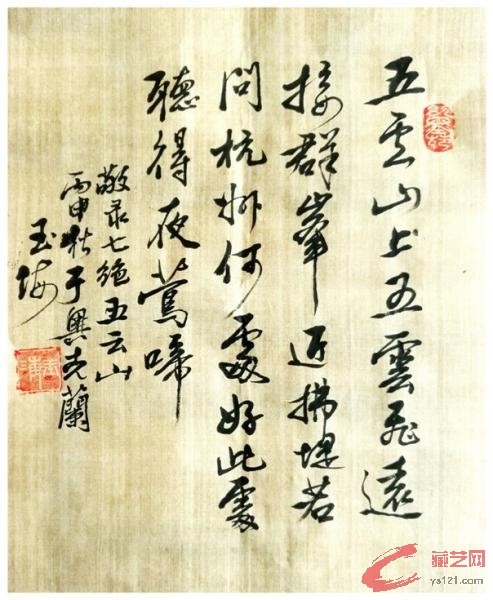 五云山上五雲飛遠
接群峯近拂堤若
問杭州何處好此處
聽得夜莺啼
敬录七绝五云山
丙申秋于奥克蘭
玉
藏艺网
ys121.com